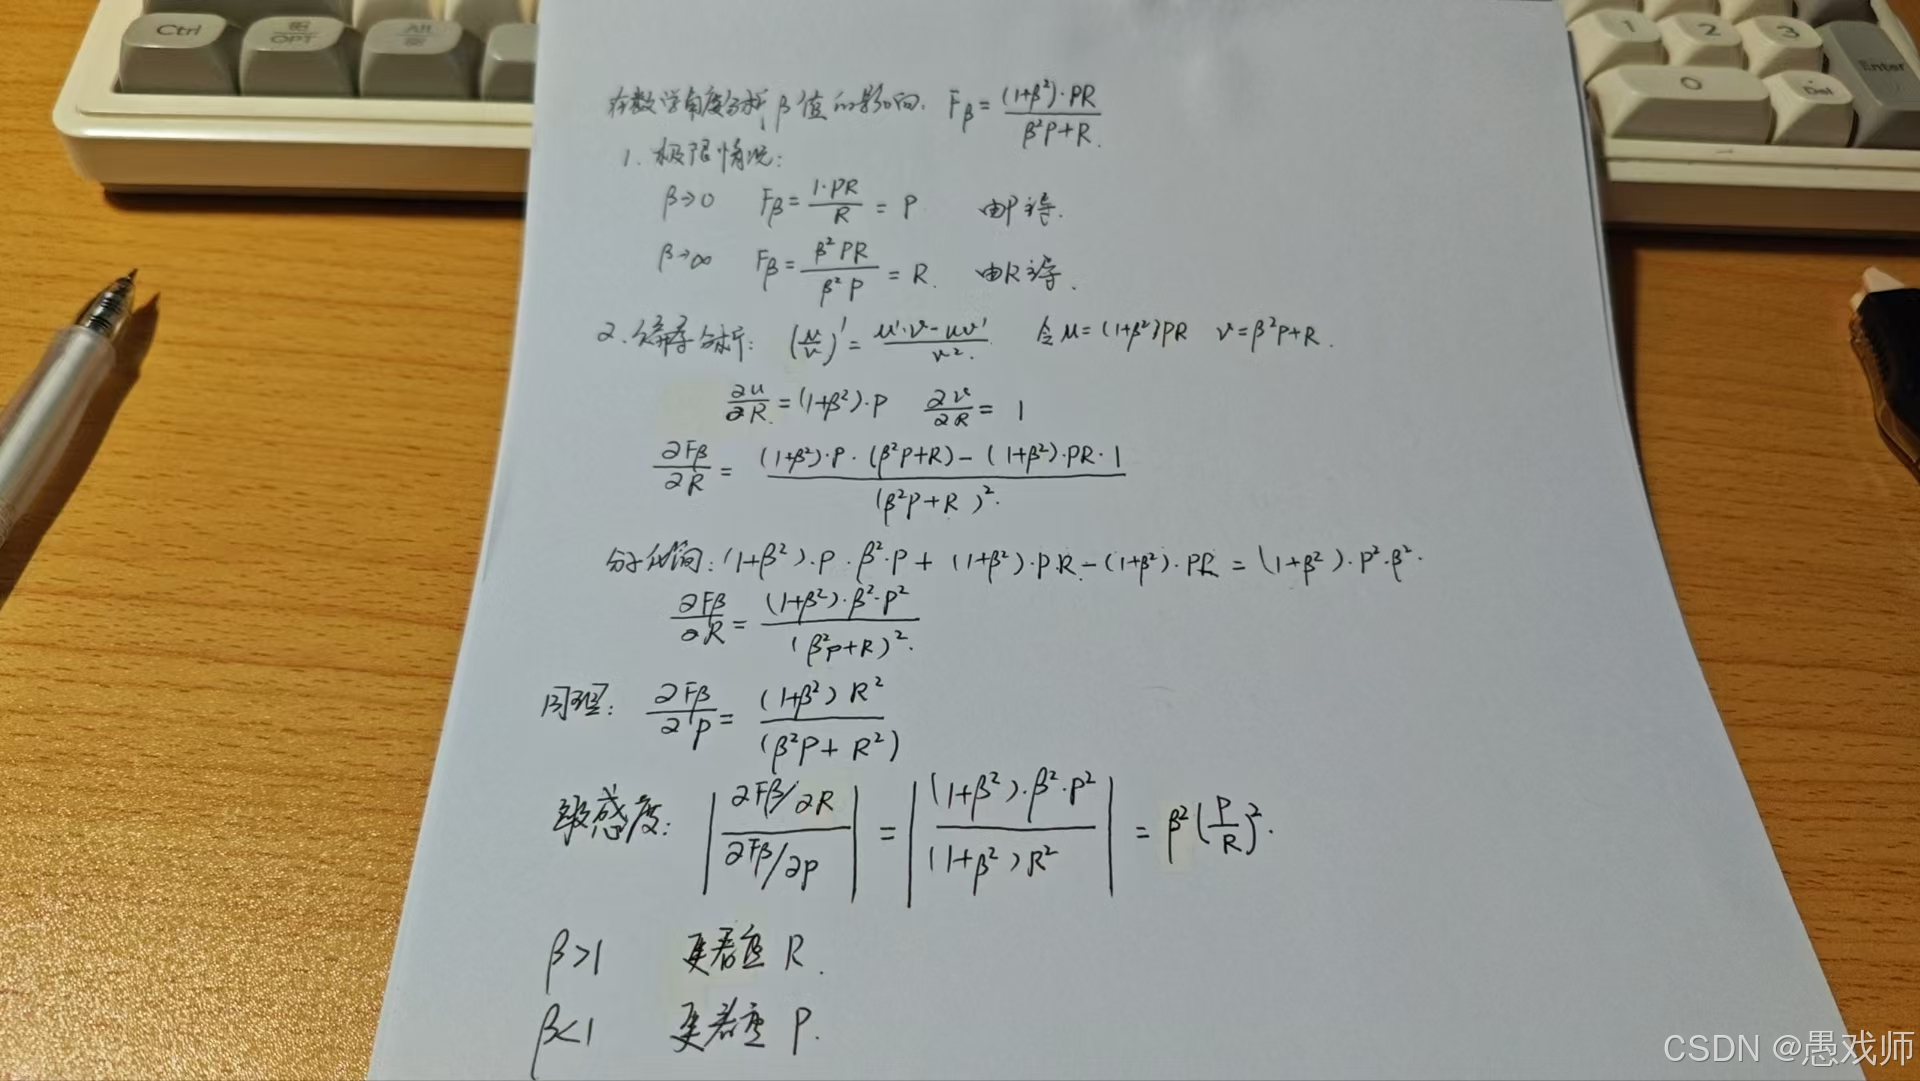 Ctrl
OPT
Alt
1 2 3
0
Del
Enter
在数学角度分析 β 值的影响. Fβ = (1+β²)·PR / β²P+R.
1. 极限情况:
β→0 Fβ = 1·PR / R = P 由P主导.
β→∞ Fβ = β²PR / β²P = R. 由R主导.
2. 分析: (u/v)' = u'·v - uv' / v². 令 u = (1+β²)PR v = β²P+R.
∂u/∂R = (1+β²)·P ∂v/∂R = 1
∂Fβ/∂R = (1+β²)·P·(β²P+R) - (1+β²)·PR·1 / (β²P+R)².
分子化简: (1+β²)·P·β²·P + (1+β²)·P·R - (1+β²)·PR = (1+β²)·P²·β².
∂Fβ/∂R = (1+β²)·β²·P² / (β²P+R)².
同理: ∂Fβ/∂P = (1+β²)R² / (β²P+R²)
敏感度: |∂Fβ/∂R / ∂Fβ/∂P| = |(1+β²)·β²·P² / (1+β²)R²| = β²(P/R)².
β>1 更看重 R.
β<1 更看重 P.
CSDN @愚戏师